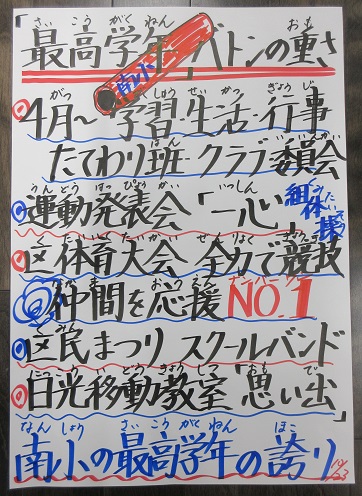 「最高学年」バトンの重さ
南小
4月〜学習・生活・行事
たてわり班・クラブ・委員会
運動発表会「一心」組体操
区体育大会 全力で競技
仲間を応援 NO.1
区民まつり スクールバンド
日光移動教室「思い出」
南小の最高学年の誇り
10/23